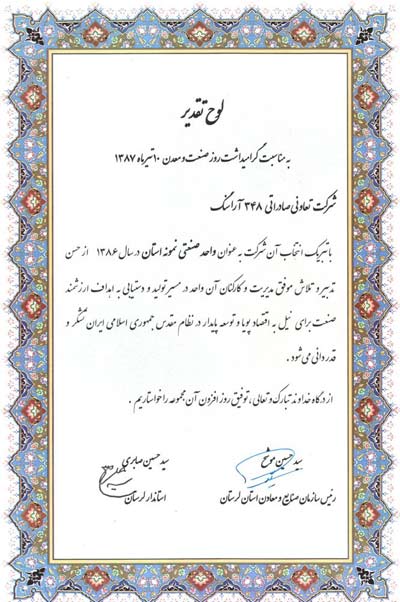 لوح تقدیر
به مناسبت گرامیداشت روز صنعت و معدن ۱۰ تیرماه ۱۳۸۷
شرکت تعاونی صادراتی ۳۴۸ آراسنگ
با تبریک انتخاب آن شرکت به عنوان واحد صنعتی نمونه استان در سال ۱۳۸۶ از حسن
تدبیر و تلاش موفق مدیریت و کارکنان آن واحد در مسیر تولید و دستیابی به اهداف ارزشمند
صنعت برای نیل به اقتصاد پویا و توسعه پایدار در نظام مقدس جمهوری اسلامی ایران تشکر و
قدردانی می شود .
از درگاه خداوند تبارک و تعالی ، توفیق روز افزون آن مجموعه را خواستاریم .
سید حسین موشح
رئیس سازمان صنایع و معادن استان لرستان
سید حسین صابری
استاندار لرستان